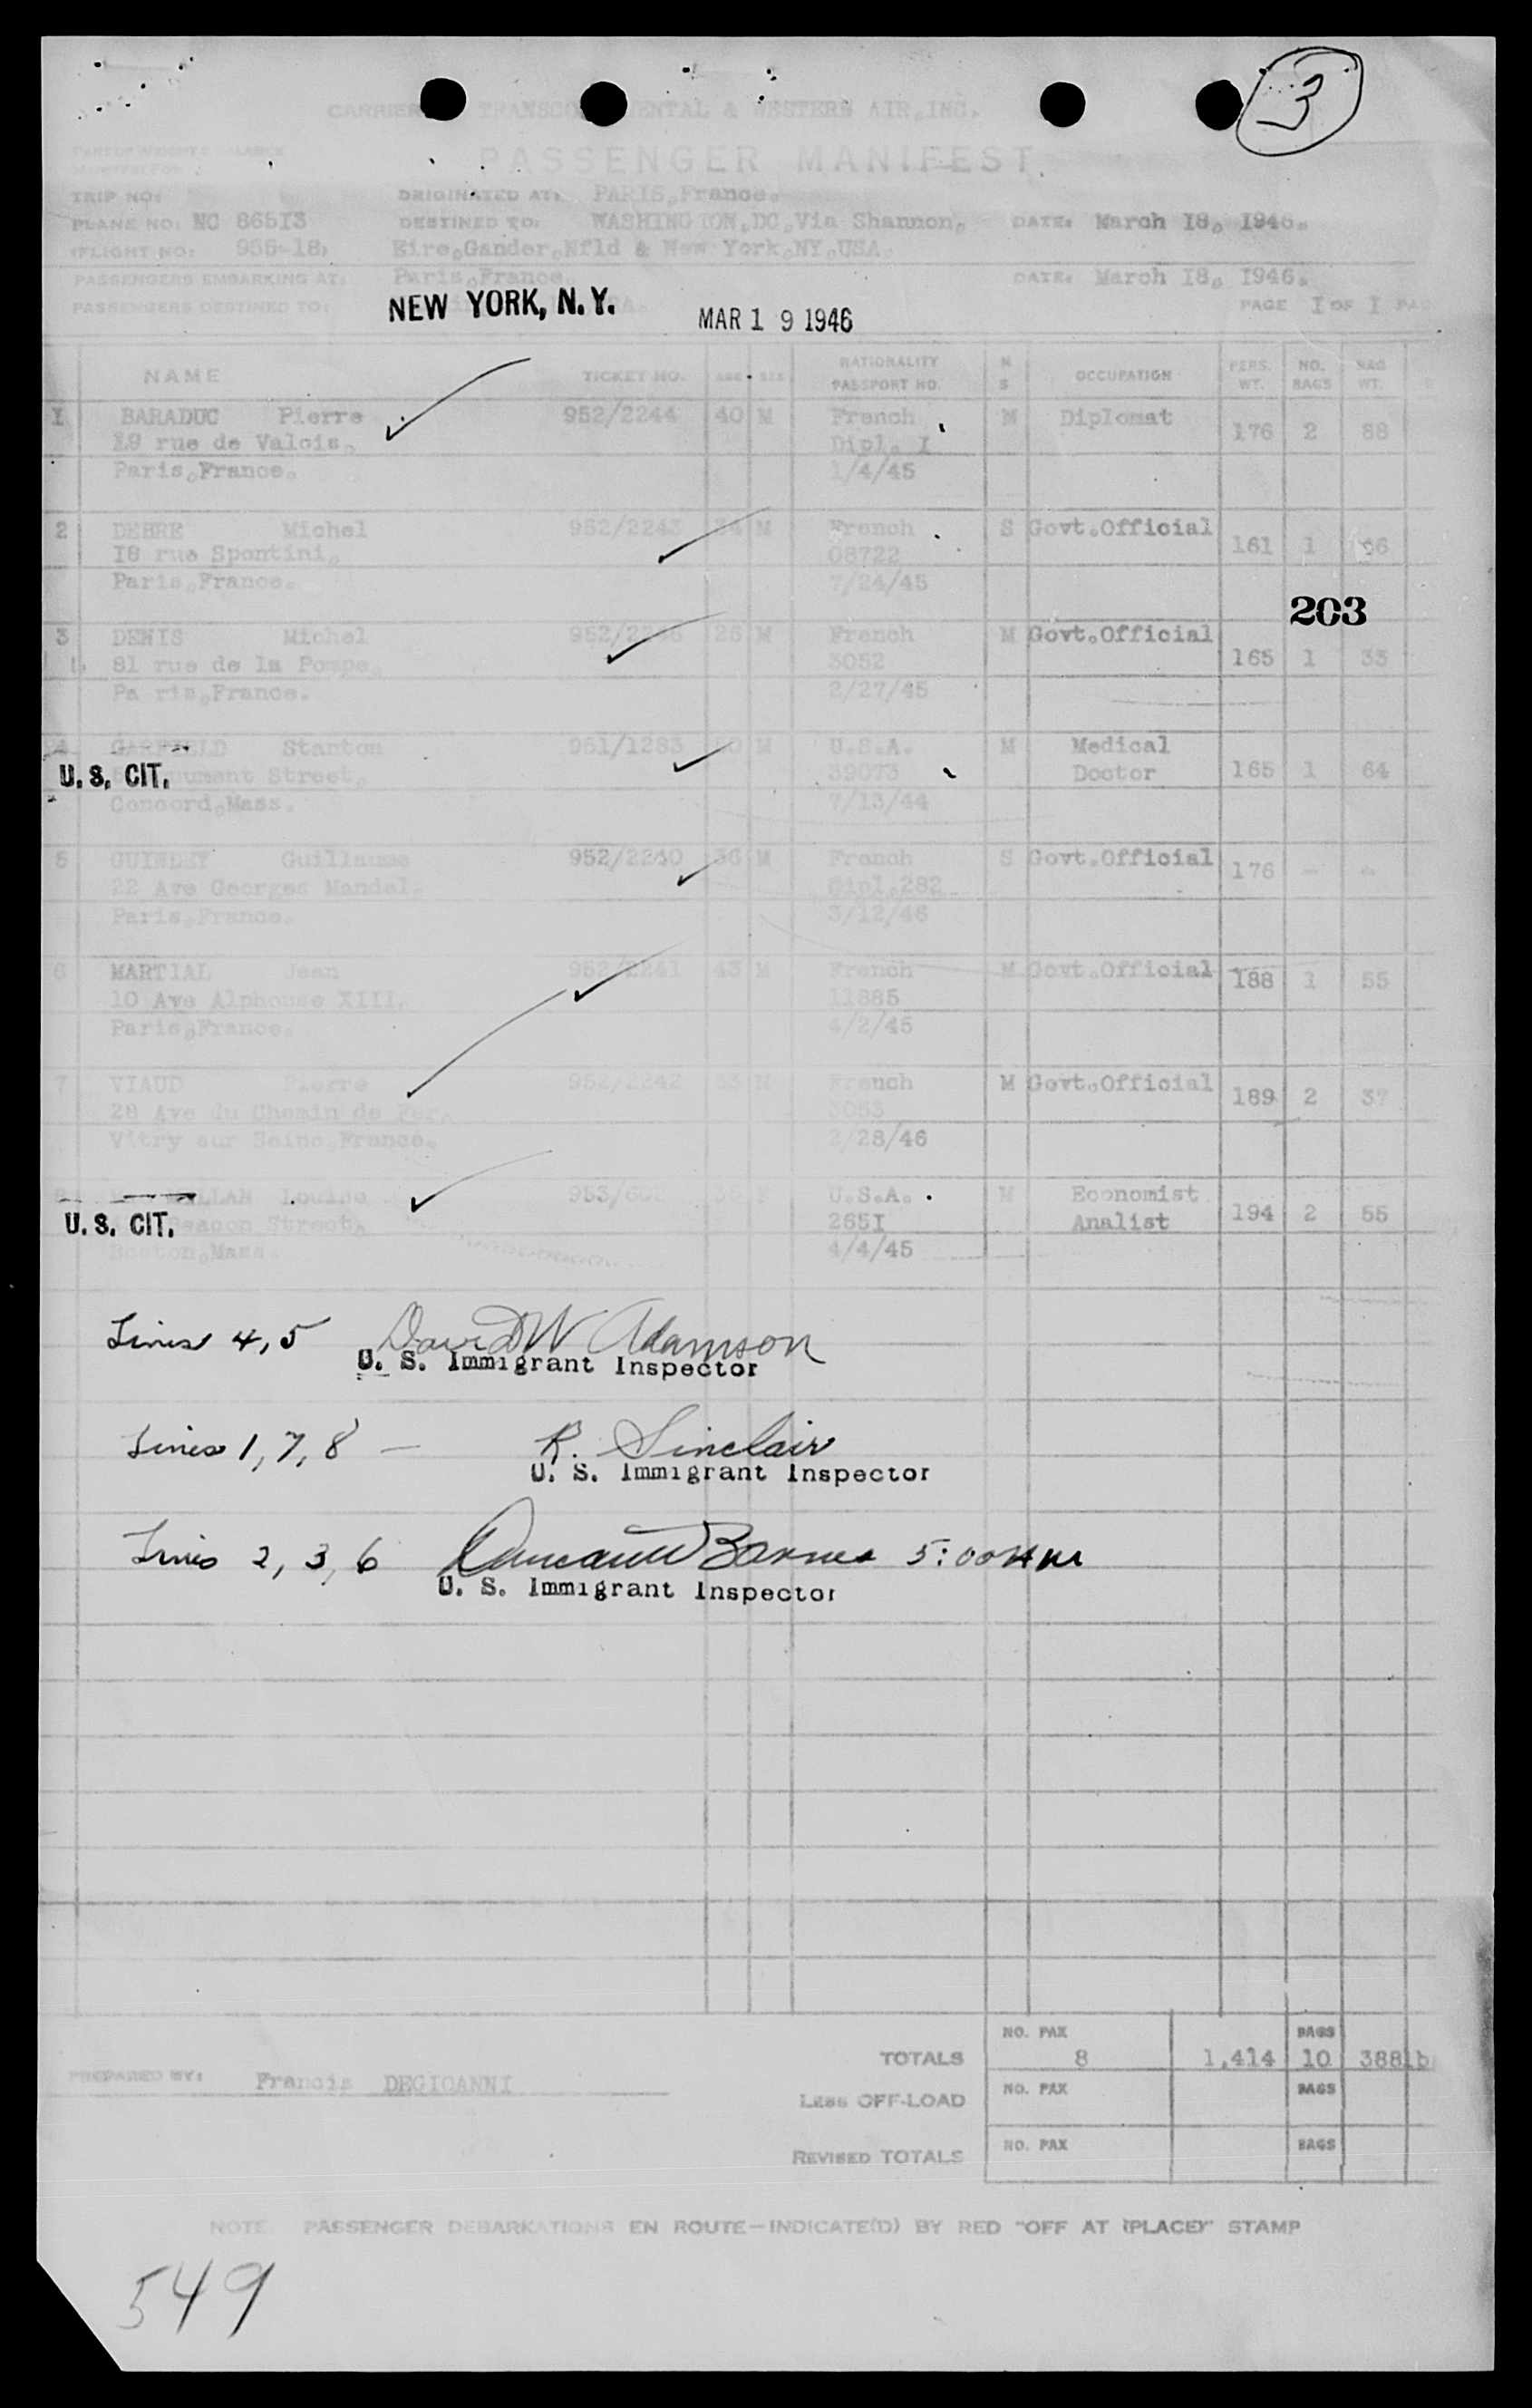 3
CARRIER TRANSCO ENTAL & WESTERN AIR, INC.
PASSENGER MANIFEST
TRIP NO: ORIGINATED AT: PARIS, France.
PLANE NO: NC 86513 DESTINED TO: WASHINGTON, DC, Via Shannon, DATE: March 18, 1946.
FLIGHT NO: 955-18 Eire, Gander, Nfld & New York, NY, USA.
PASSENGERS EMBARKING AT: Paris, France. DATE: March 18, 1946.
PASSENGERS DESTINED TO: PAGE I OF I
NEW YORK, N.Y. MAR 19 1946
NAME TICKET NO. AGE SEX NATIONALITY PASSPORT NO. M S OCCUPATION PERS. WT. NO. BAGS BAG WT.
1 BARADUC Pierre 952/2244 40 M French M Diplomat 176 2 88
19 rue de Valois, Dipl. I
Paris, France. 1/4/45
2 DEBRE Michel 952/2243 34 M French S Govt. Official 161 1 56
18 rue Spontini, 08722
Paris, France. 7/24/45
203
3 DENIS Michel 952/ 26 M French M Govt. Official 165 1 33
81 rue de la Pompe, 3052
Pa ris, France. 2/27/45
4 GARFIELD Stanton 951/1283 50 M U.S.A. M Medical 165 1 64
U. S. CIT. Street, 39073 Doctor
Concord, Mass. 7/13/44
5 GUINDEY Guillaume 952/2240 36 M French S Govt. Official 176 - -
22 Ave Georges Mandel, Dipl. 282
Paris, France. 3/12/46
6 MARTIAL Jean 952/2241 43 M French M Govt. Official 188 1 55
10 Ave Alphonse XIII, 11885
Paris, France. 4/2/45
7 VIAUD Pierre 952/2242 53 M French M Govt. Official 189 2 37
28 Ave du Chemin de Fer, 3053
Vitry sur Seine, France. 2/28/46
Louise 953/ U.S.A. M Economist 194 2 55
U. S. CIT. Beacon Street, 265I Analist
Boston, Mass. 4/4/45
Lines 4, 5 David W Adamson
U. S. Immigrant Inspector
Lines 1, 7, 8 — R. Sinclair
U. S. Immigrant Inspector
Lines 2, 3, 6 Barnes 5:00
U. S. Immigrant Inspector
NO. PAX BAGS
TOTALS 8 1,414 10 388 lb
PREPARED BY: Francis DEGIOANNI
LESS OFF-LOAD NO. PAX BAGS
REVISED TOTALS NO. PAX BAGS
NOTE PASSENGER DEBARKATIONS EN ROUTE—INDICATE(D) BY RED "OFF AT (PLACE)" STAMP
549